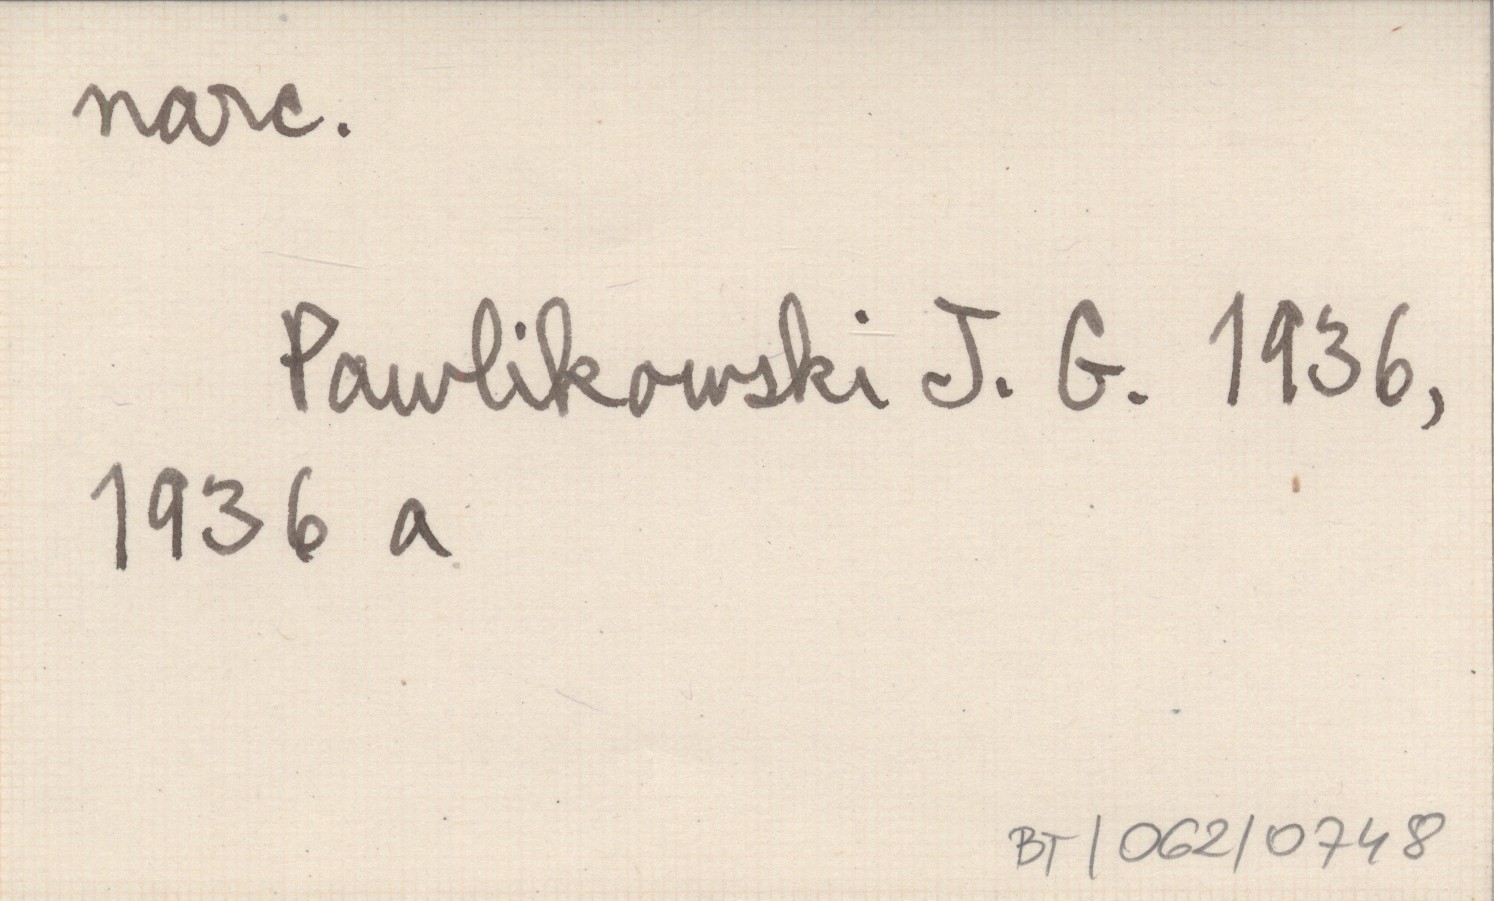 narc.
Pawlikowski J. G. 1936,
1936 a
BT/062/0748